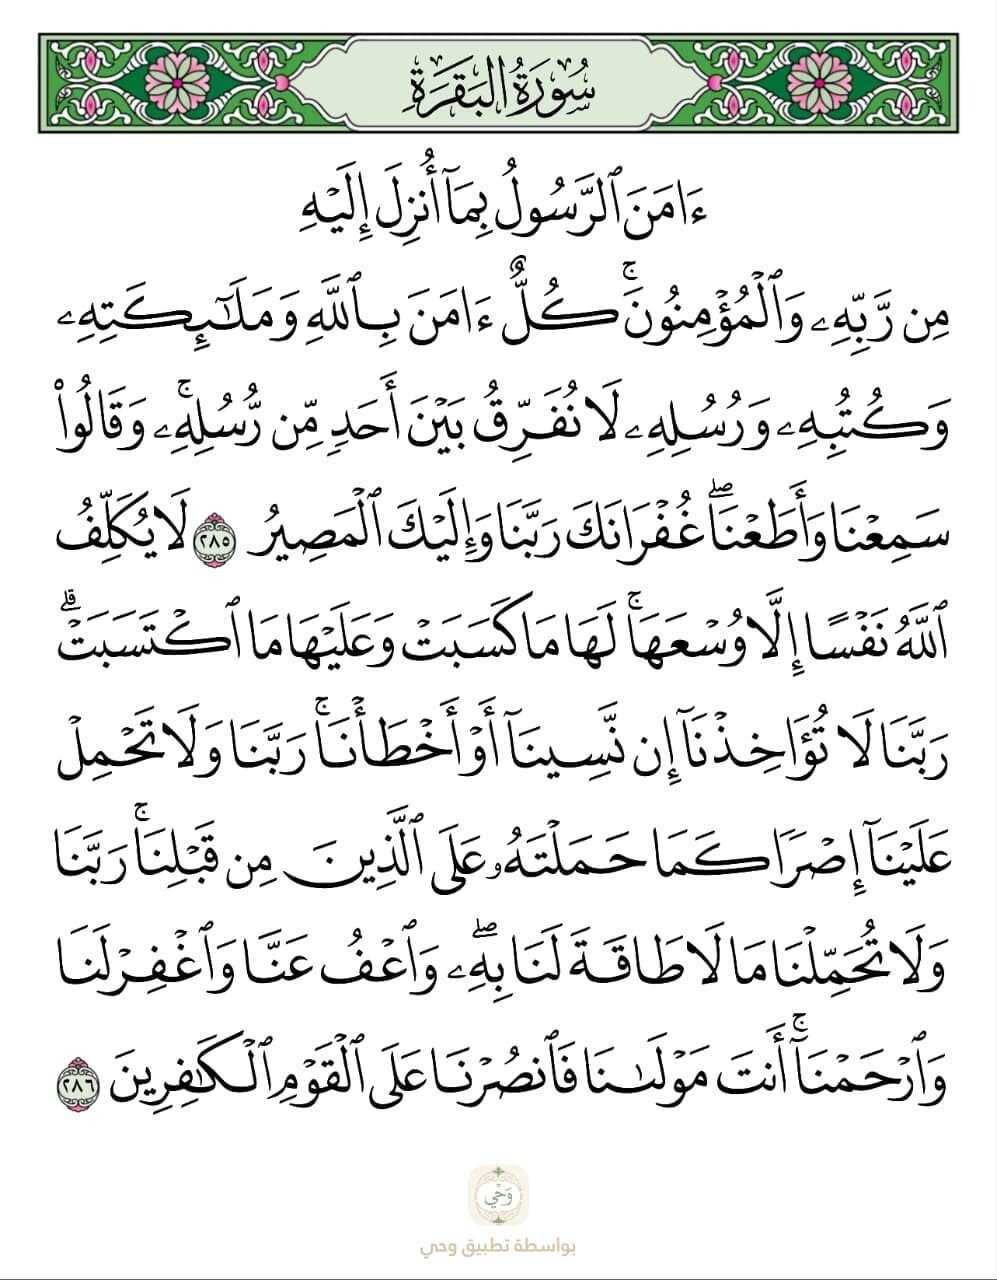 سُورَةُ البَقَرَةِ
ءَامَنَ ٱلرَّسُولُ بِمَآ أُنزِلَ إِلَيۡهِ
مِن رَّبِّهِۦ وَٱلۡمُؤۡمِنُونَۚ كُلٌّ ءَامَنَ بِٱللَّهِ وَمَلَٰٓئِكَتِهِۦ
وَكُتُبِهِۦ وَرُسُلِهِۦ لَا نُفَرِّقُ بَيۡنَ أَحَدٖ مِّن رُّسُلِهِۦۚ وَقَالُواْ
سَمِعۡنَا وَأَطَعۡنَاۖ غُفۡرَانَكَ رَبَّنَا وَإِلَيۡكَ ٱلۡمَصِيرُ ٢٨٥ لَا يُكَلِّفُ
ٱللَّهُ نَفۡسًا إِلَّا وُسۡعَهَاۚ لَهَا مَا كَسَبَتۡ وَعَلَيۡهَا مَا ٱكۡتَسَبَتۡۗ
رَبَّنَا لَا تُؤَاخِذۡنَآ إِن نَّسِينَآ أَوۡ أَخۡطَأۡنَاۚ رَبَّنَا وَلَا تَحۡمِلۡ
عَلَيۡنَآ إِصۡرٗا كَمَا حَمَلۡتَهُۥ عَلَى ٱلَّذِينَ مِن قَبۡلِنَاۚ رَبَّنَا
وَلَا تُحَمِّلۡنَا مَا لَا طَاقَةَ لَنَا بِهِۦۖ وَٱعۡفُ عَنَّا وَٱغۡفِرۡ لَنَا
وَٱرۡحَمۡنَآۚ أَنتَ مَوۡلَىٰنَا فَٱنصُرۡنَا عَلَى ٱلۡقَوۡمِ ٱلۡكَٰفِرِينَ ٢٨٦
وَحْي
بواسطة تطبيق وحي